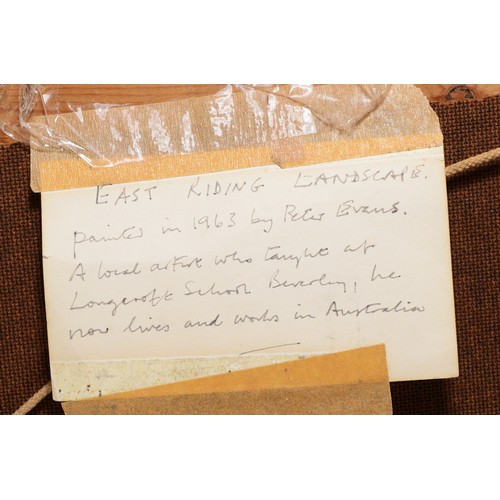 EAST RIDING LANDSCAPE.
painted in 1963 by Peter Evans.
A local artist who taught at
Longcroft School Beverley, he
now lives and works in Australia